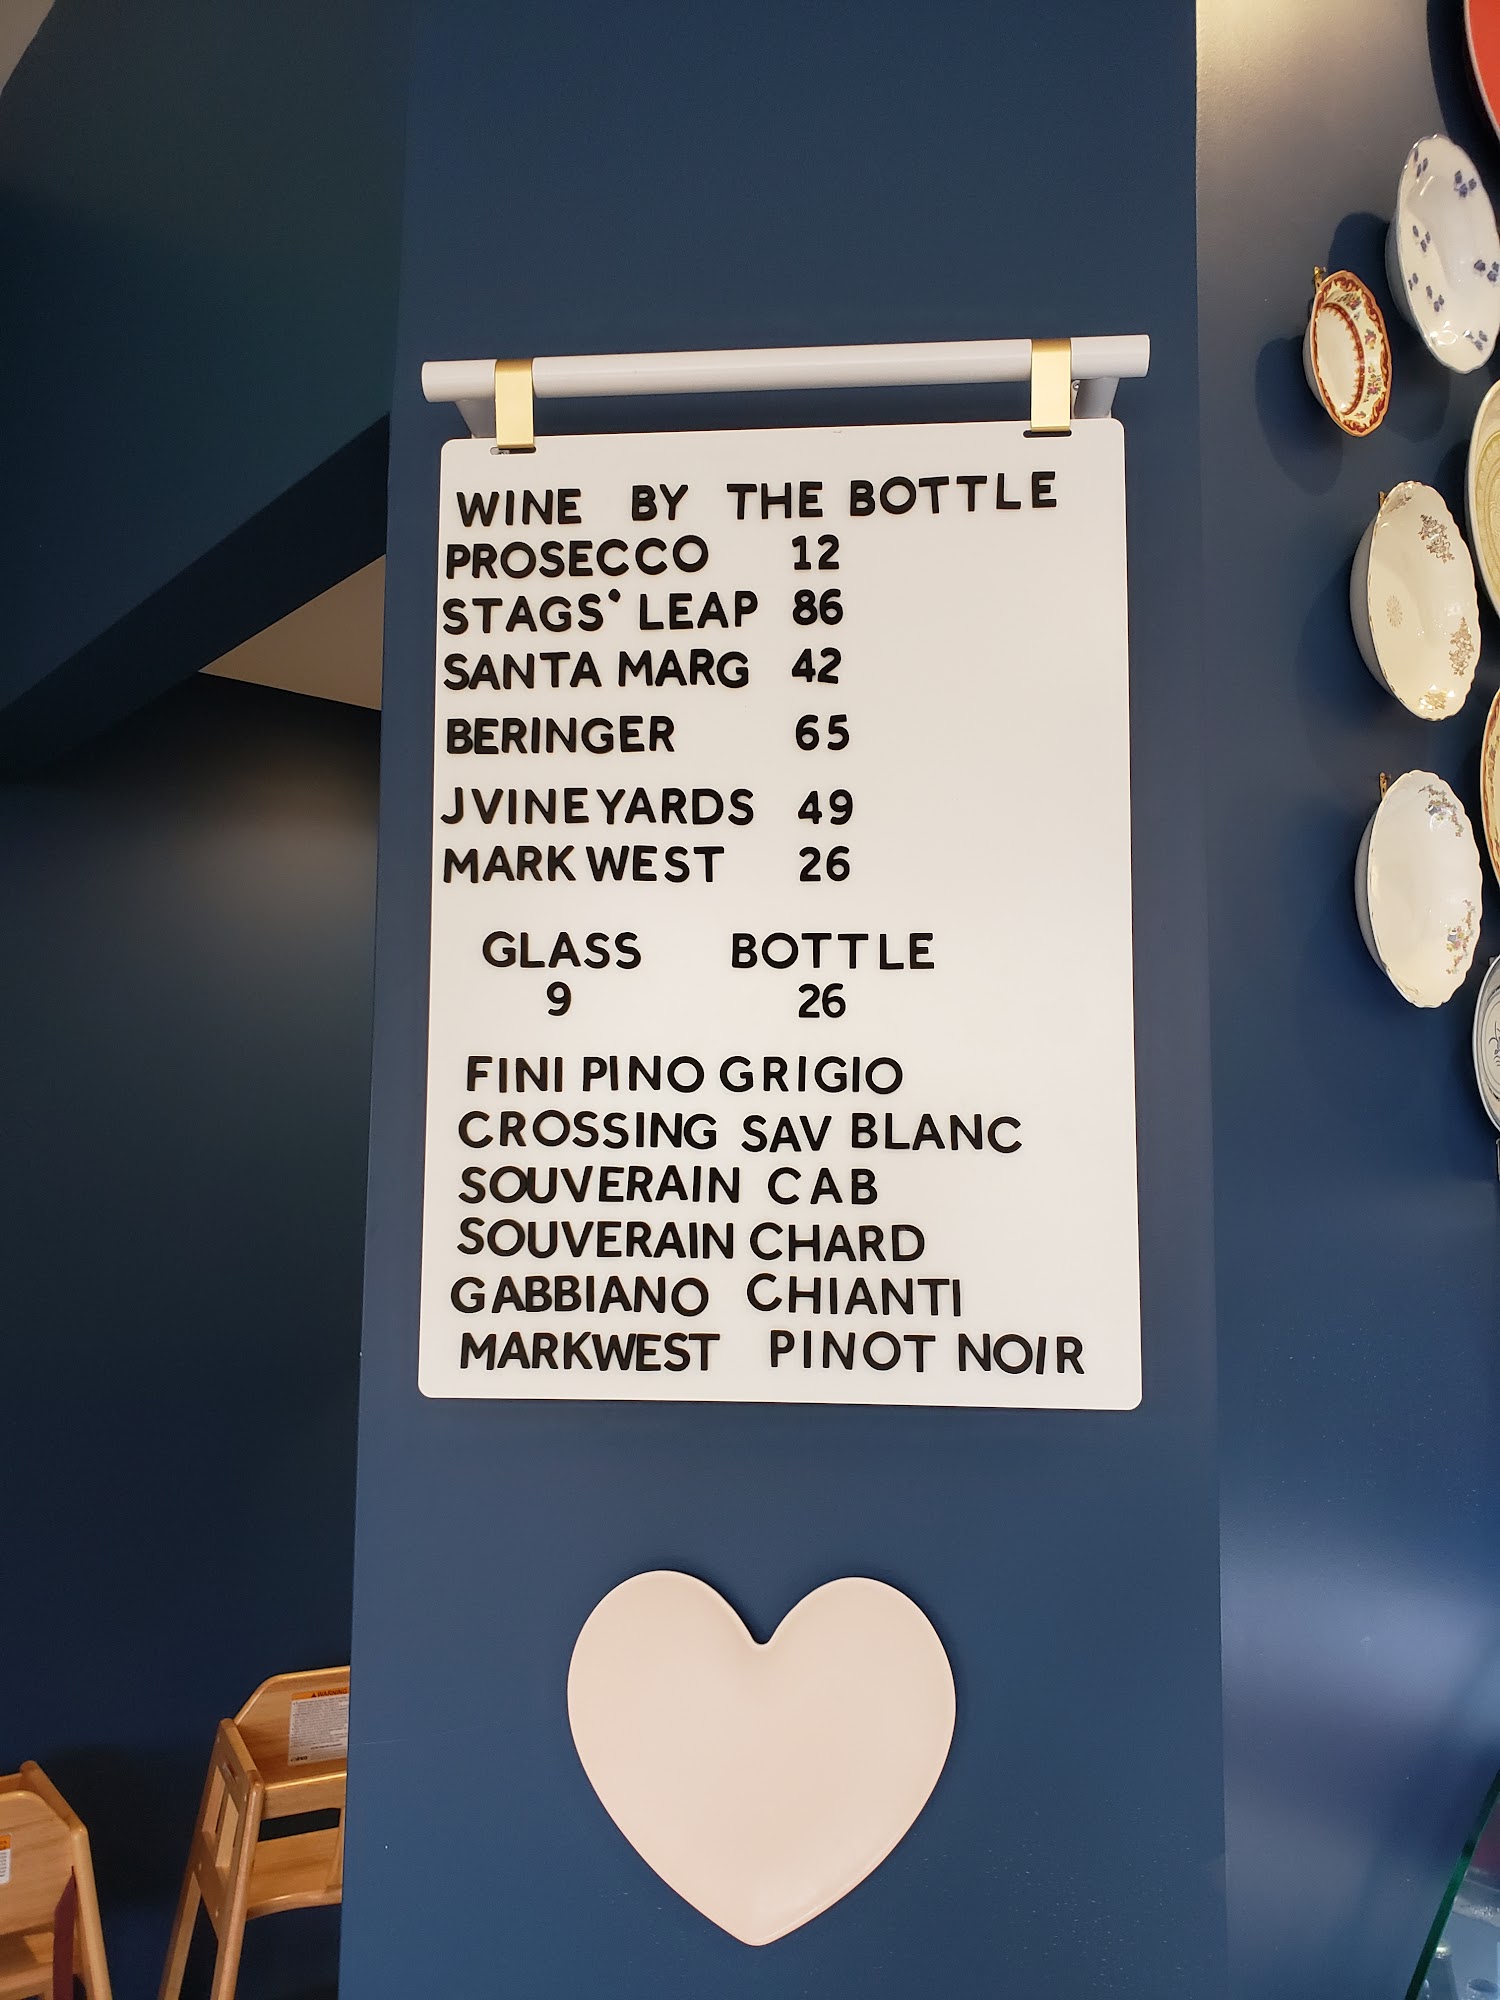 WINE BY THE BOTTLE
PROSECCO 12
STAGS' LEAP 86
SANTA MARG 42
BERINGER 65
JVINEYARDS 49
MARK WEST 26
GLASS BOTTLE
9 26
FINI PINO GRIGIO
CROSSING SAV BLANC
SOUVERAIN CAB
SOUVERAIN CHARD
GABBIANO CHIANTI
MARKWEST PINOT NOIR
WARNING